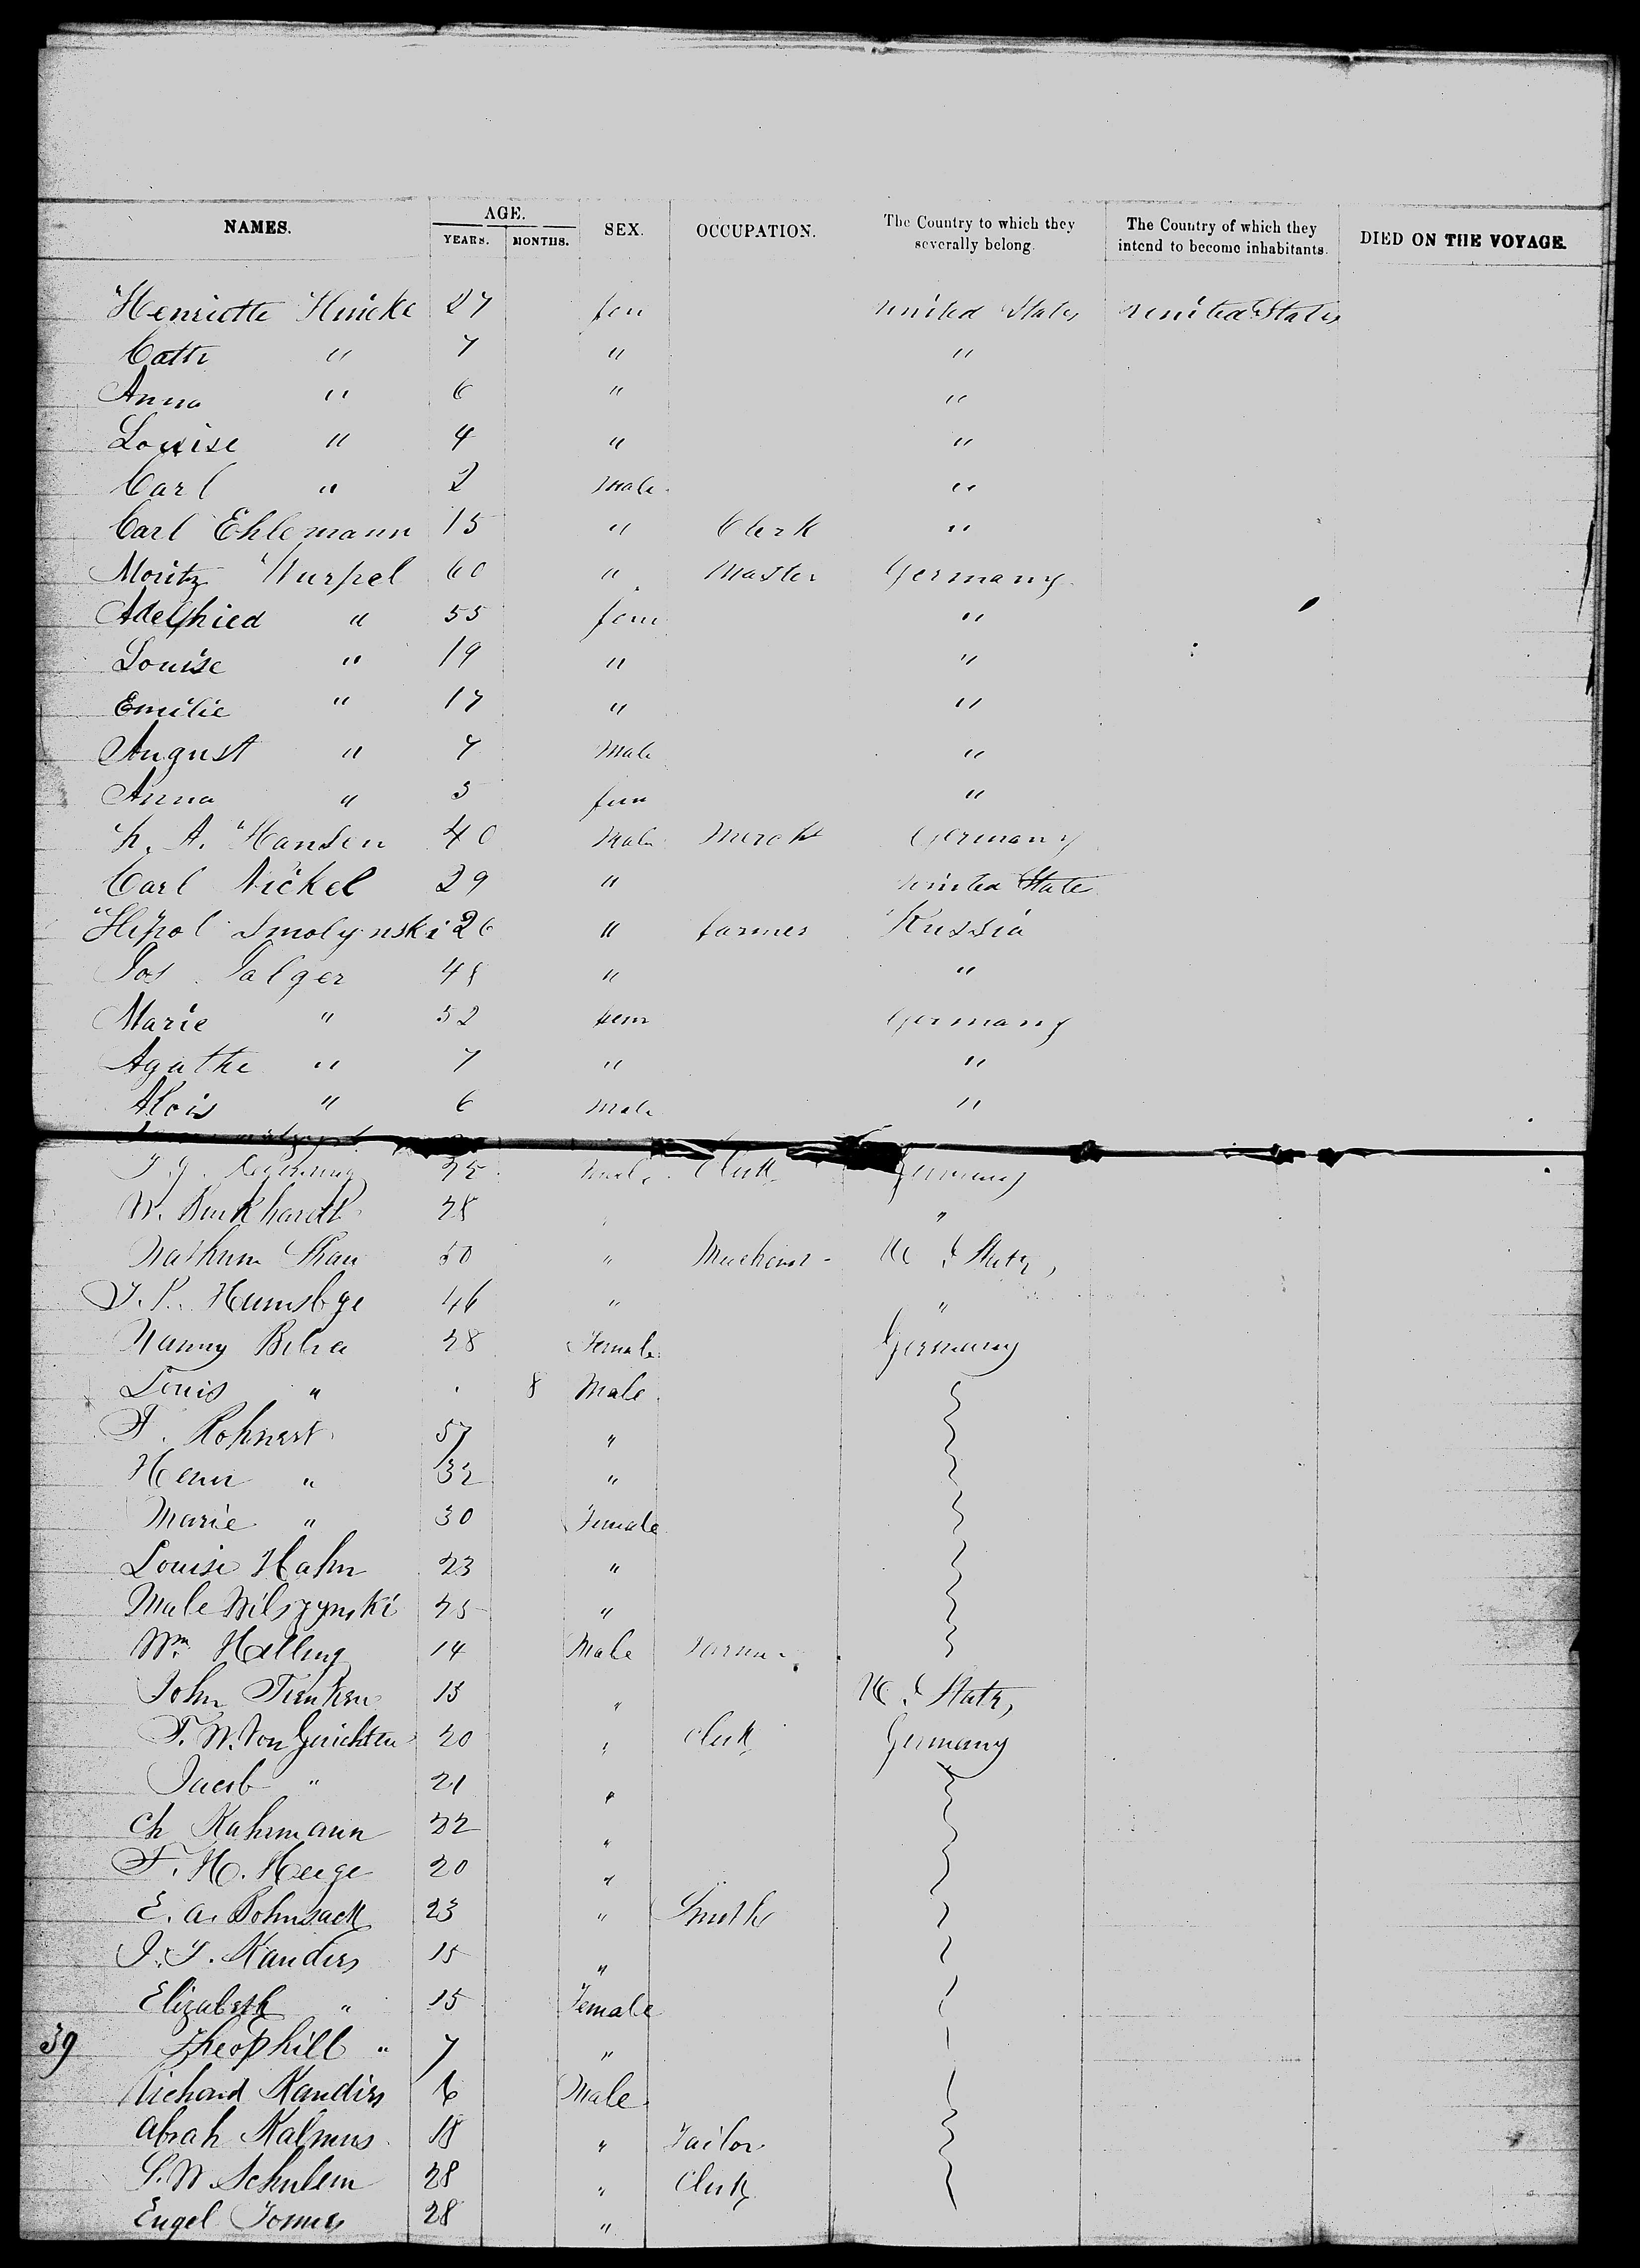 NAMES. AGE. YEARS. MONTHS. SEX. OCCUPATION. The Country to which they severally belong. The Country of which they intend to become inhabitants. DIED ON THE VOYAGE.
Henriette Hincke 27 fem United States United States
Cath " 7 " "
Anna " 6 " "
Louise " 4 " "
Carl " 2 Male "
Carl Ehlemann 15 " Clerk "
Moritz Wurpel 60 " Master Germany
Adelhied " 55 fem "
Louise " 19 " "
Emilie " 17 " "
August " 7 Male "
Anna " 5 fem "
A. Hansen 40 Male Mercht Germany
Carl Nickel 29 " United State
Hipol Smolynski 26 " farmer Russia
Jos. Jalger 48 " "
Marie " 52 fem Germany
Agathe " 7 " "
Alois " 6 Male "
25 Male Clerk Germany
W. Burkhardt 28 "
Nathum Shau 50 " Merchant U. States,
J. P. Humsbge 46 " "
Nanny Behre 28 Female Germany
Louis " 8 Male
F. Rohnert 57 "
Henr " 32 "
Marie " 30 Female
Louise Hahn 23 "
Male Wilszynski 25 "
Wm. Helling 14 Male Farmer
John Tienken 13 " U. States,
F. W. Von Gerichten 20 " Clerk Germany
Jacob " 21 "
Ch Kahrmann 22 "
F. H. Heege 20 "
E. A. Bohnsack 23 " Smith
J. T. Kanders 15 "
Elizabeth " 15 Female
39 Theophill " 7 "
Richard Kanders 6 Male
Abrah Kalmus 18 " Tailor
S. W. Schulein 28 " Clerk
Engel Tomes 28 "